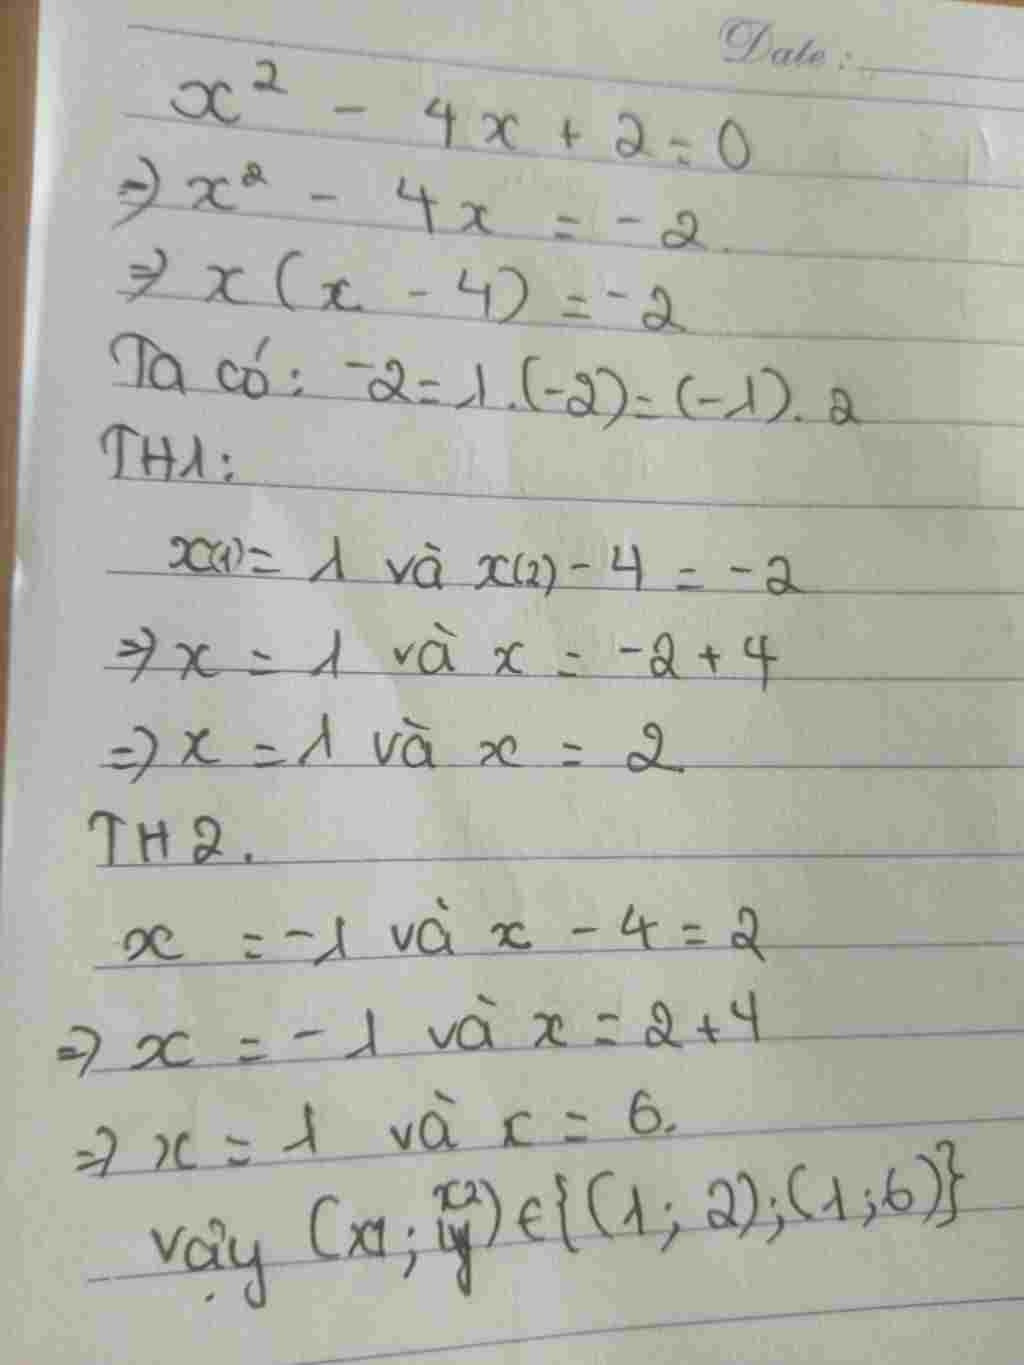 Date:
x² - 4x + 2 = 0
=> x² - 4x = -2.
=> x(x - 4) = -2
Ta có: -2 = 1.(-2) = (-1). 2
TH1:
x(1) = 1 và x(2) - 4 = -2
=> x = 1 và x = -2 + 4
=> x = 1 và x = 2.
TH2.
x = -1 và x - 4 = 2
=> x = -1 và x = 2 + 4
=> x = 1 và x = 6.
vậy (x1; x2) ∈ {(1; 2); (1; 6)}